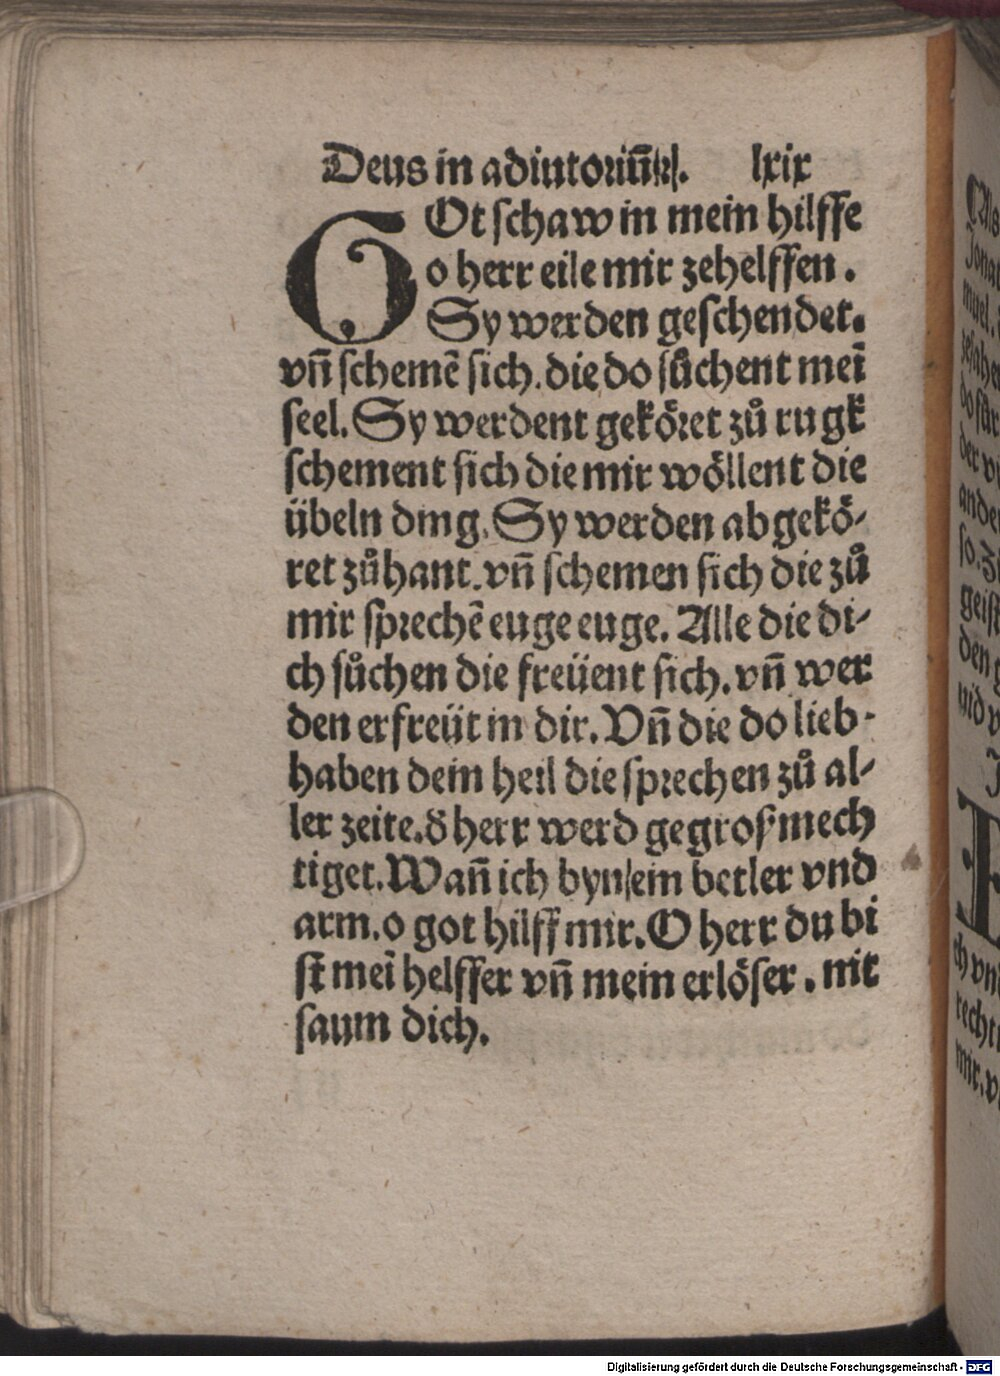 Deus in adiutoriū ꝛc. lxix
GOt schaw in mein hilffe
o herr eile mir zehelffen.
Sy werden geschendet.
vñ schemē sich. die do sůchent meī
seel. Sy werdent geköret zů rugk
schement sich die mir wöllent die
übeln ding. Sy werden abgekö-
ret zůhant. vñ schemen sich die zů
mir sprechē euge euge. Alle die di-
ch sůchen die freüent sich. vñ wer
den erfreüt in dir. Vñ die do lieb-
haben dein heil die sprechen zů al-
ler zeite. d̄ herr werd gegroßmech
tiget. Wañ ich byn ein betler vnd
arm. o got hilff mir. O herr du bi
st meī helffer vñ mein erlöser. nit
saum dich.
Digitalisierung gefördert durch die Deutsche Forschungsgemeinschaft - DFG